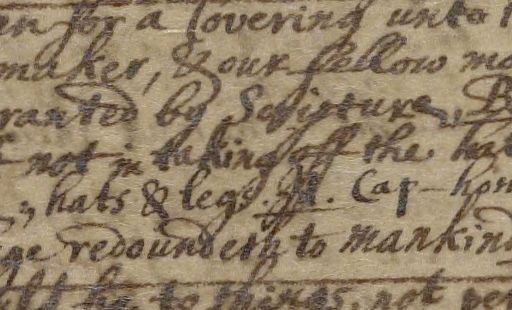 for a Covering unto
maker, & our fellow
ranted by Scripture,
not in taking off the hat
hats & legs. Cap-
redoundeth to mankind
to things, not